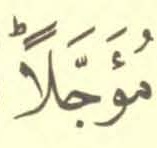 مُؤَجَّلاًؕ